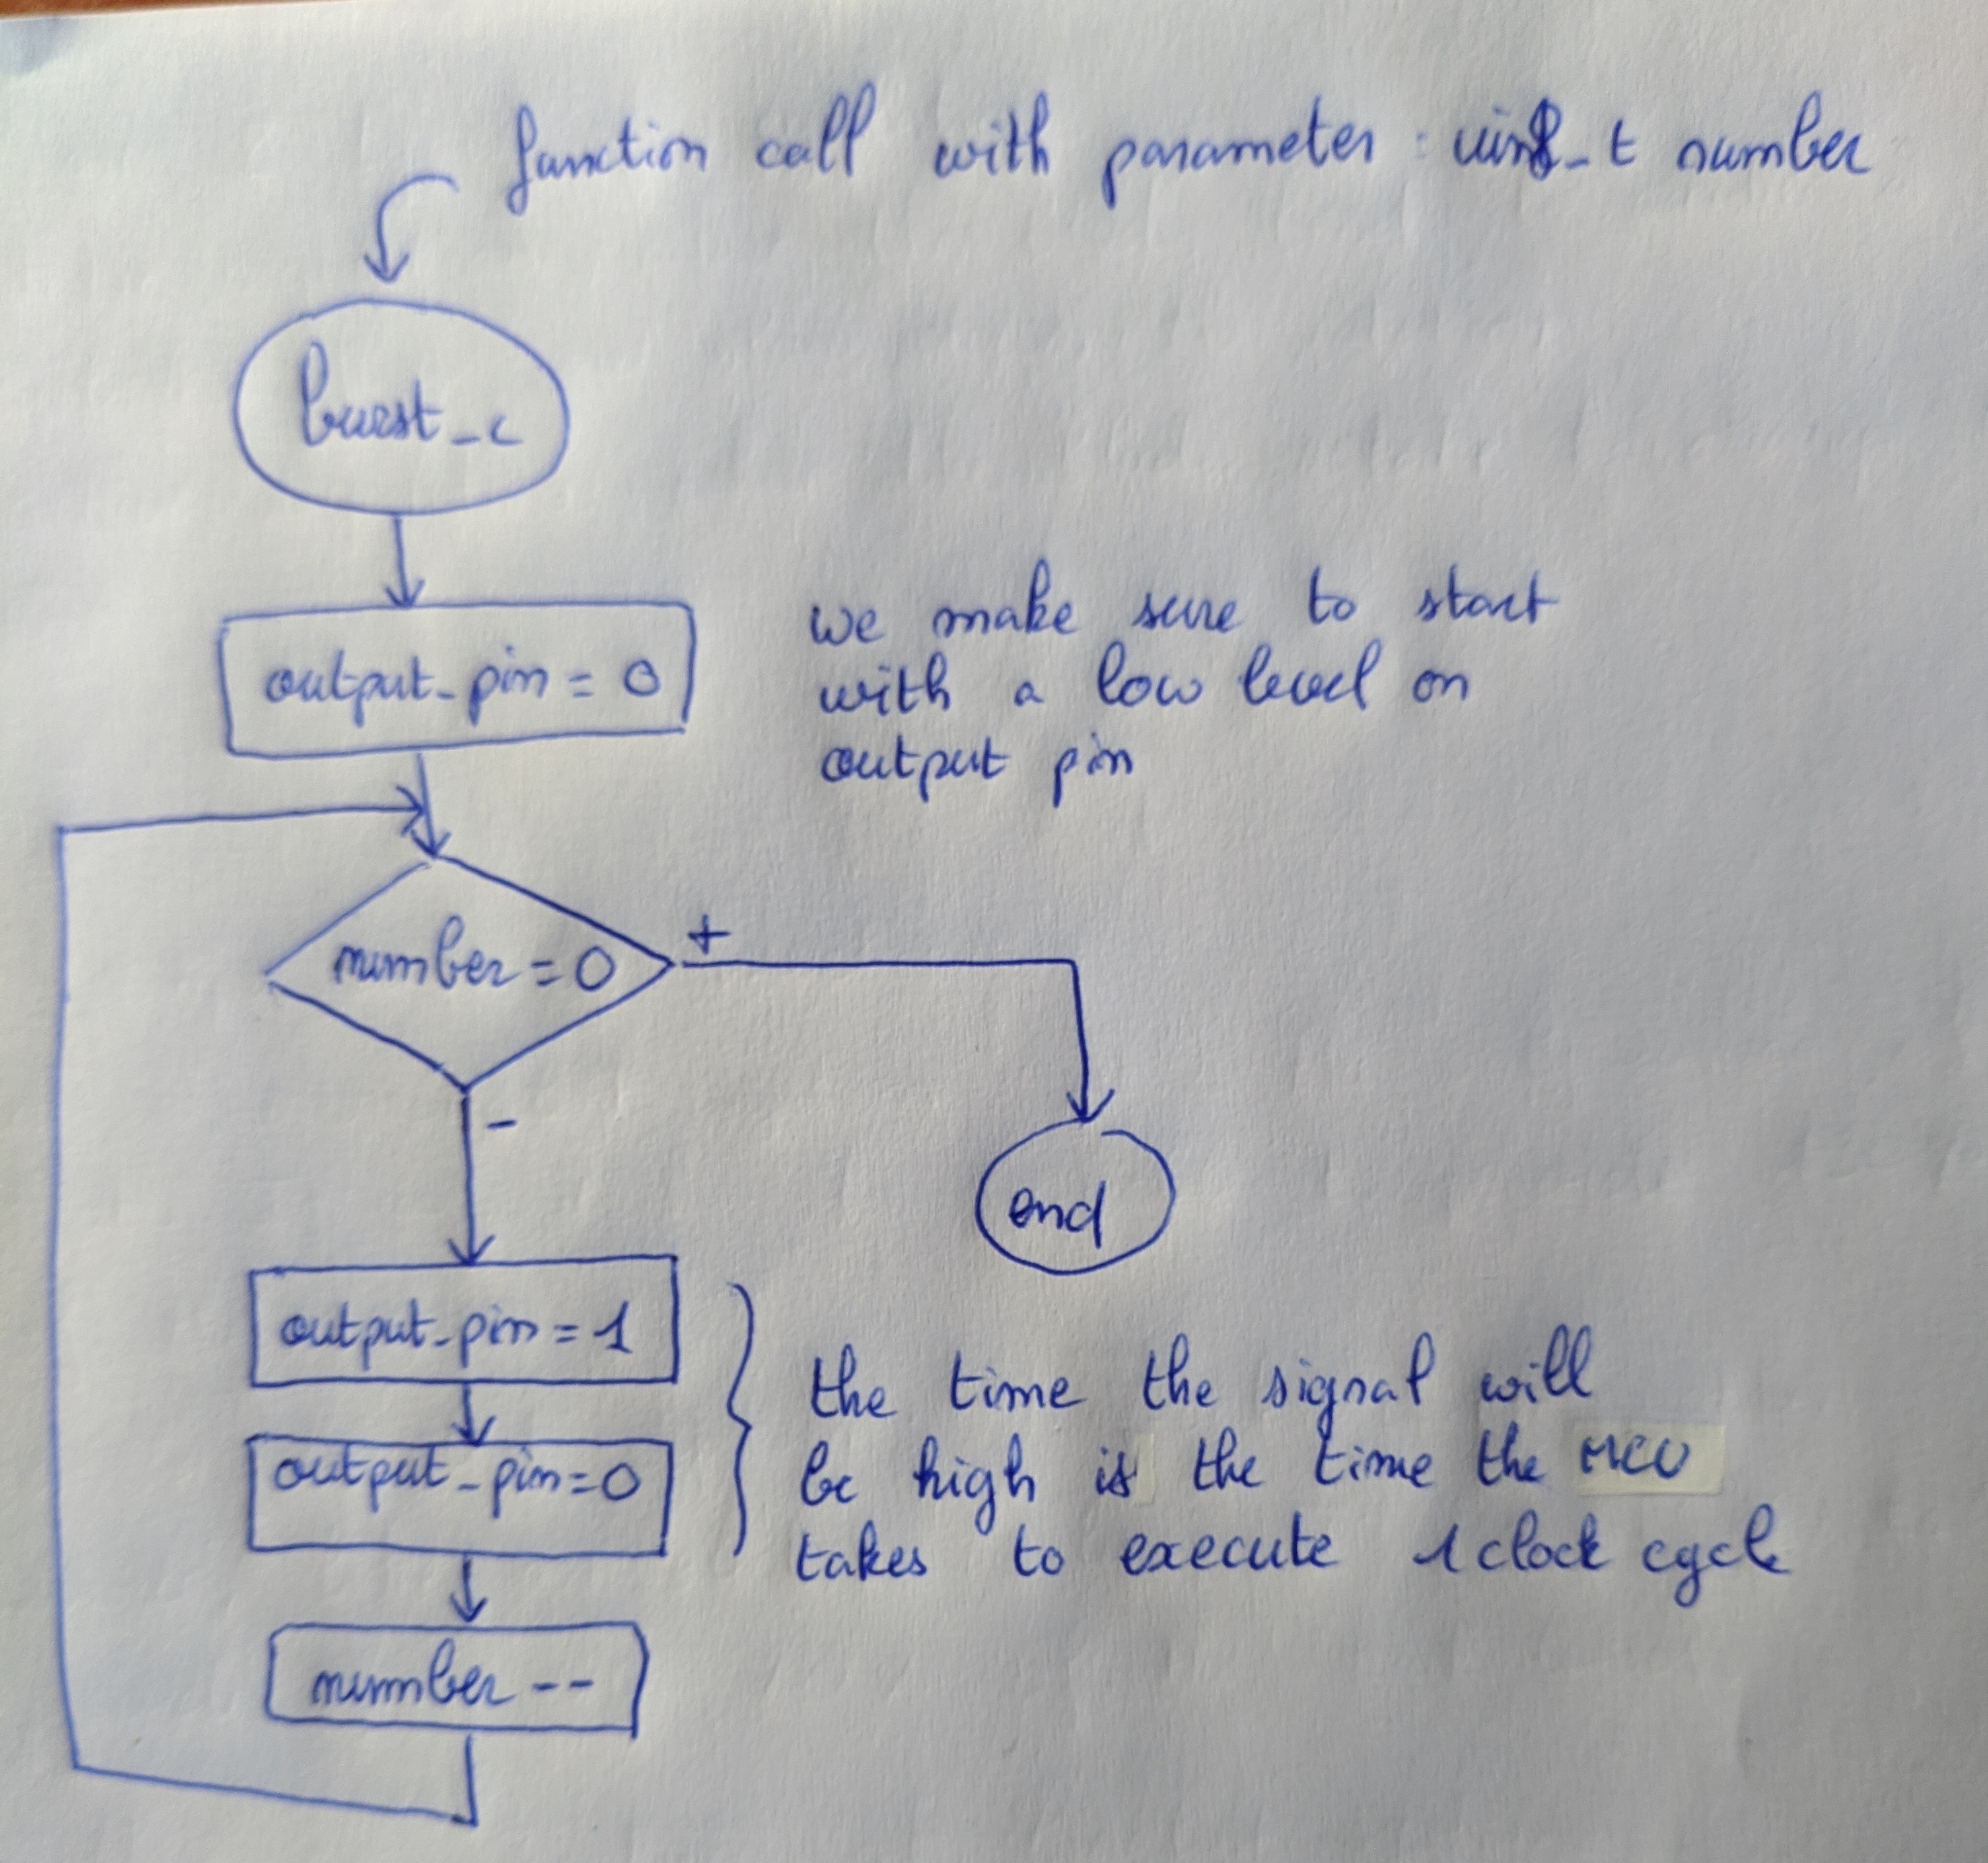 function call with parameter : uint8_t number
burst_c
output_pin = 0
we make sure to start
with a low level on
output pin
number = 0
+
-
end
output_pin = 1
output_pin = 0
the time the signal will
be high is the time the MCU
takes to execute 1 clock cycle
number --